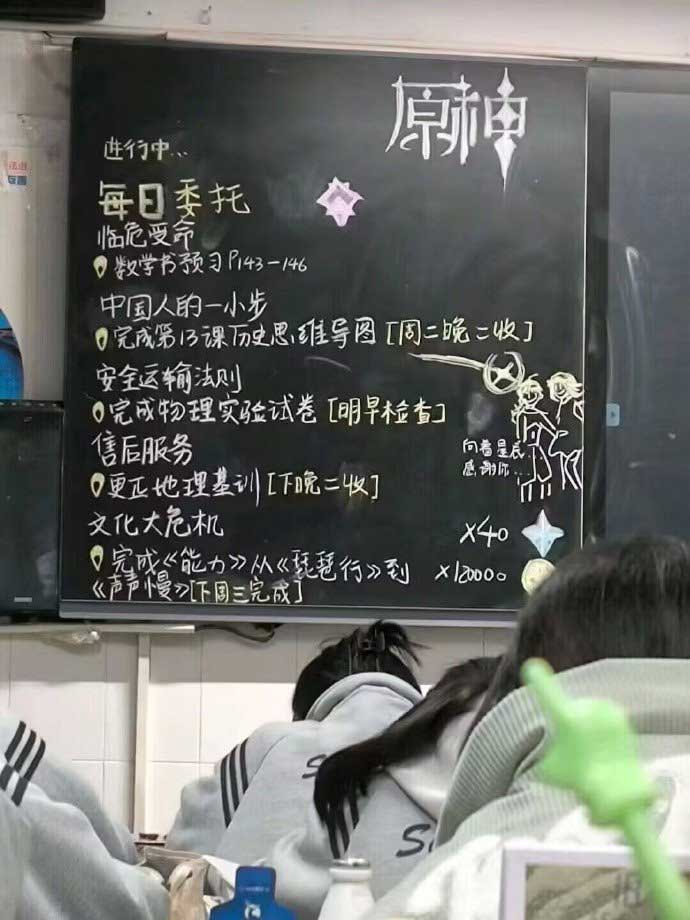 原神
进行中...
每日委托
临危受命
数学书预习P143-146
中国人的一小步
完成第13课历史思维导图[周二晚二收]
安全运输法则
完成物理实验试卷[明早检查]
售后服务
更正地理基训[下晚二收]
向着星辰
感谢你...
文化大危机
X40
完成《能力》从《琵琶行》到
《声声慢》[下周三完成]
X120000